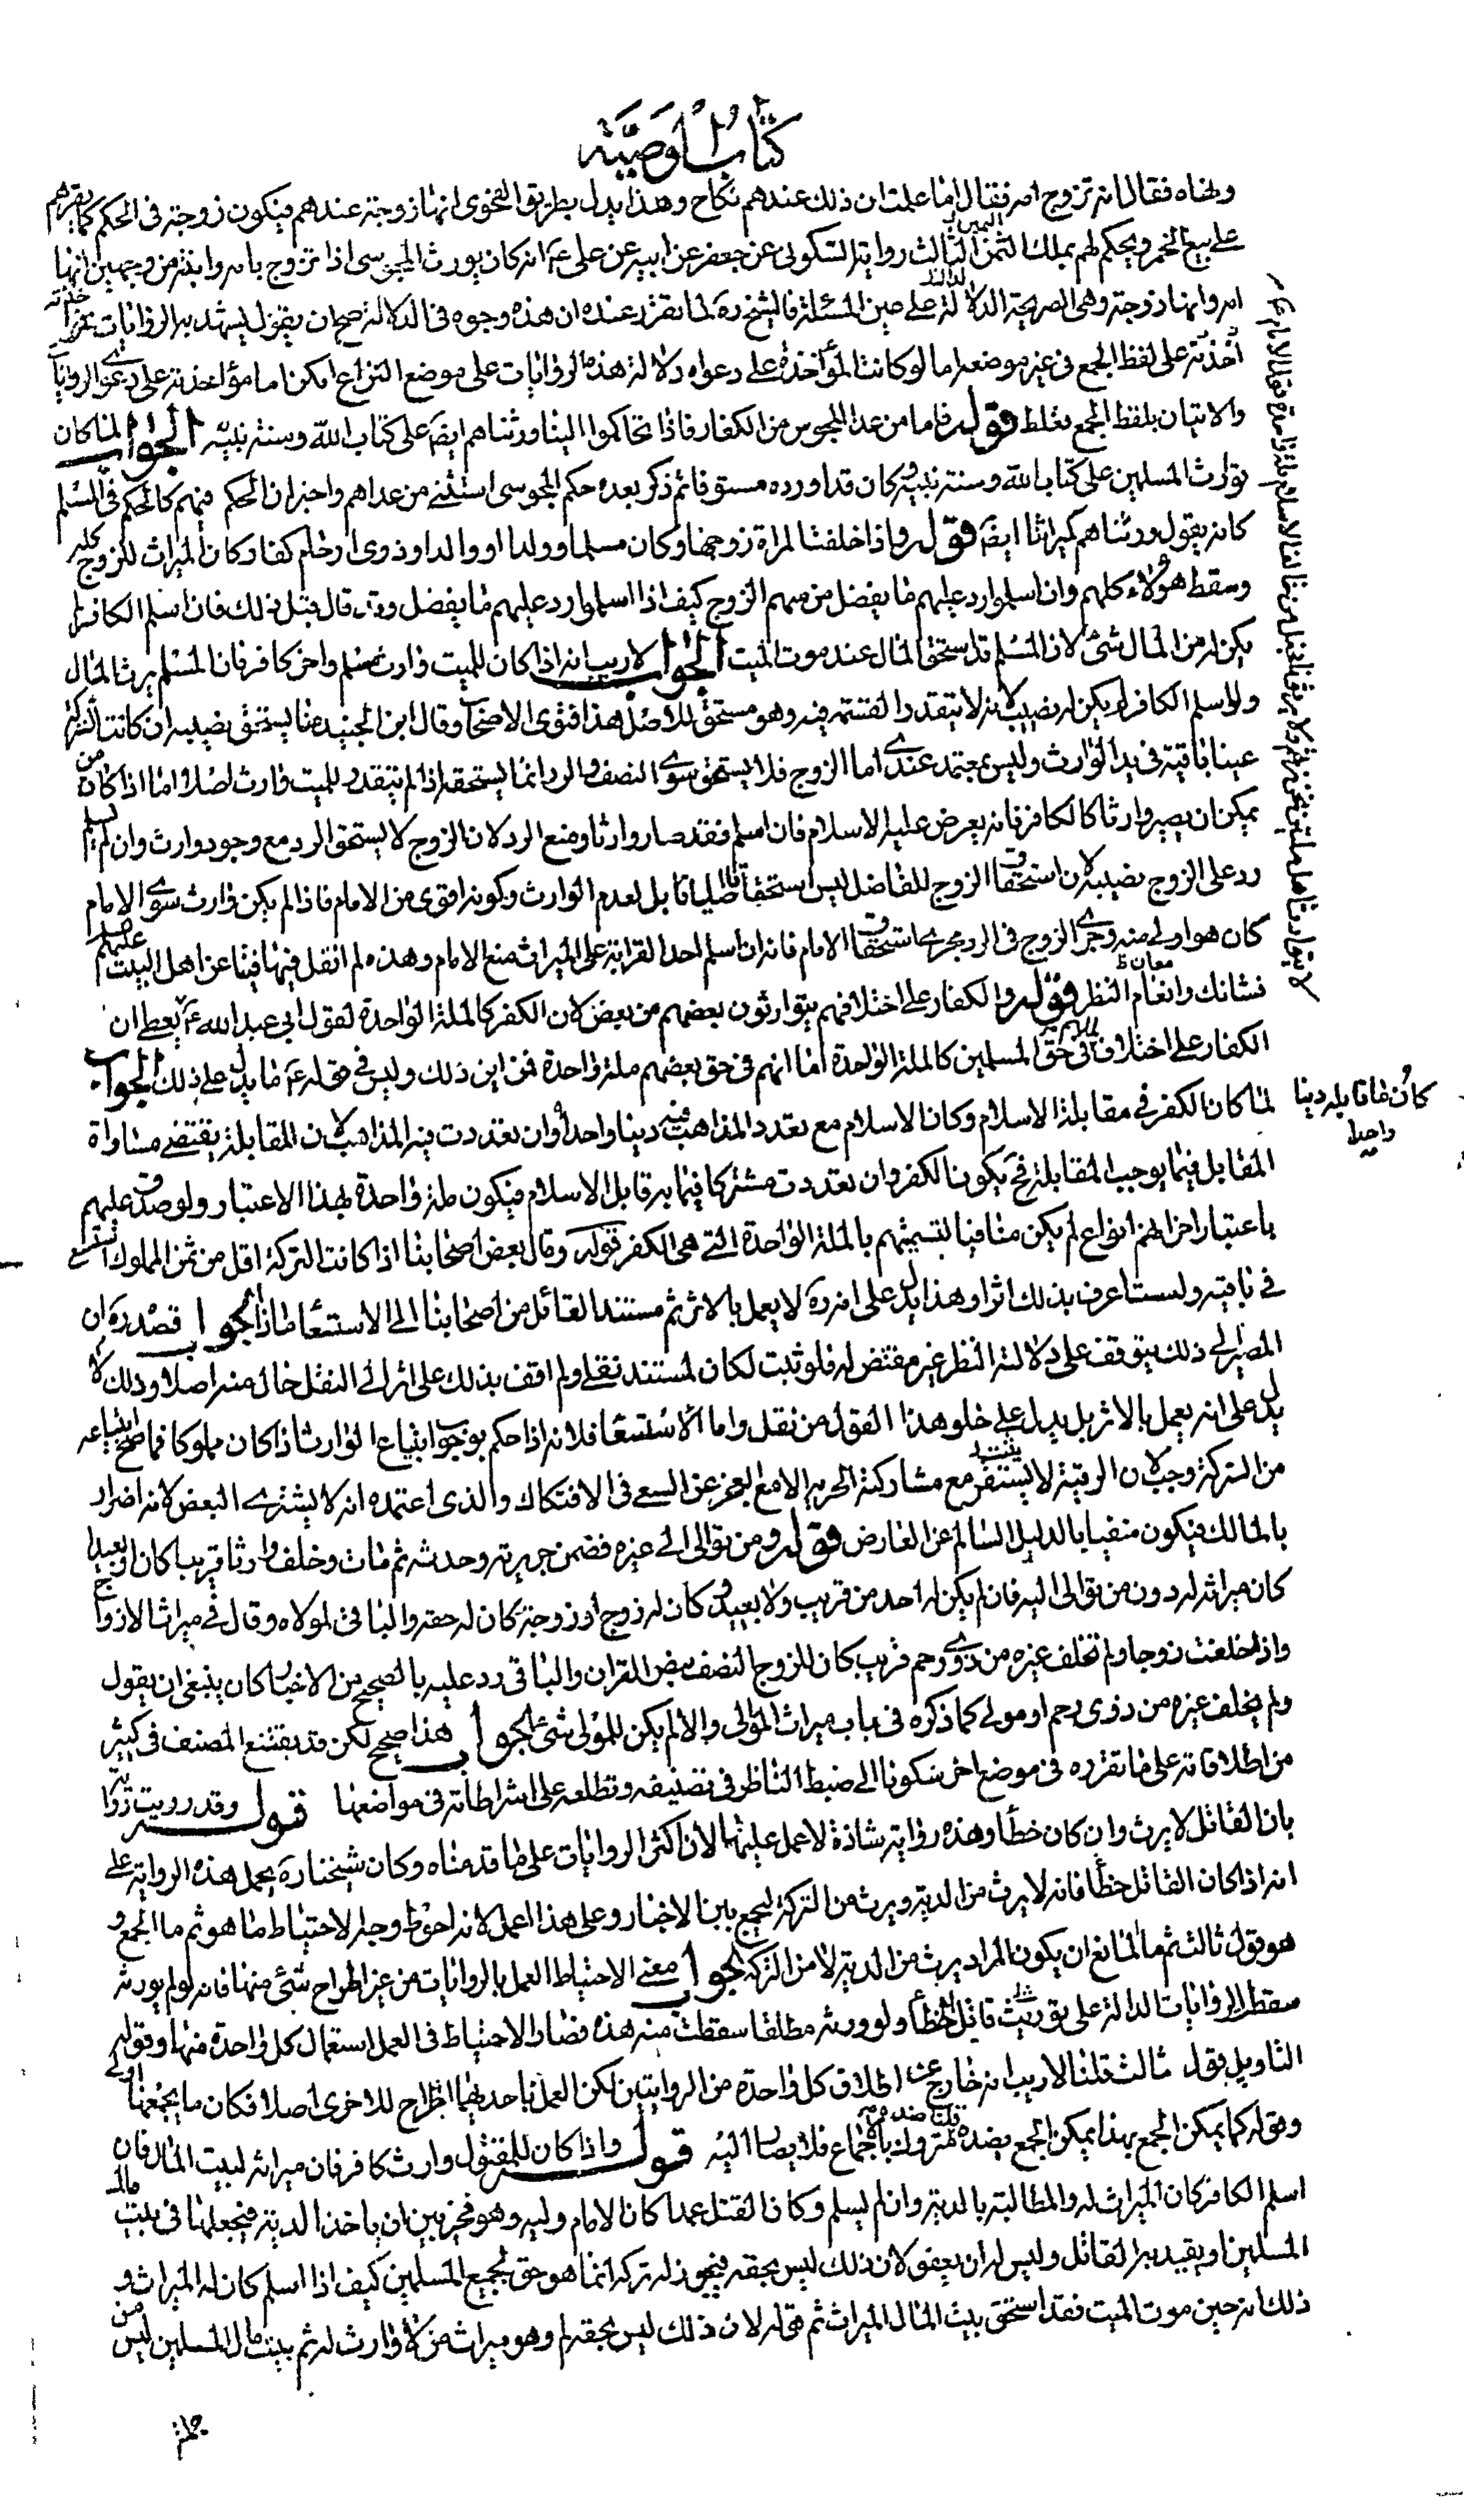 كتاب الوصية
ونهاه فقال انه تزوج امه فقال اما علمت ان ذلك عندهم نكاح وهذا يدل بطريق الفحوى انها زوجته عندهم فيكون زوجته فى الحكم كما يقرهم
على بيع الخمر ويحكم لهم بملك الثمن الثالث رواية السكونى عن جعفر عن ابيه عن على ع انه كان يورث المجوسى اذا تزوج بامه وابنته من وجهين انها
امه وانها زوجته وهى الصريحة الدلالة على عين المسئلة فالشيخ ره لما تقرر عنده ان هذه وجوه فى الدلالة صح ان يقول يشهد به الروايات
أخذته على لفظ الجمع فى غير موضعه اما لو كانت المؤاخذة على دعواه دلالة هذه الروايات على موضع النزاع امكن اما مؤاخذته على دعوى الروايات
والاتيان بلفظ الجمع فغلط قوله فاما من عدا المجوس من الكفار فاذا تحاكموا الينا ورثناهم ايضا على كتاب الله وسنة نبيه الجواب لما كان
توارث المسلمين على كتاب الله وسنة نبيه كان قد اورده مستوفا ثم ذكر بعده حكم المجوسى استثنى من عداهم واخبر ان الحكم فيهم كالحكم فى المسلم
كانه يقول ورثناهم كميراثنا ايضا قوله واذا خلفت المراة زوجها وكان مسلما وولدا او والدا وذوى ارحام كفارا كان الميراث للزوج كله
وسقط هؤلاء كلهم وان اسلموا رد عليهم ما يفضل من سهم الزوج كيف اذا اسلموا رد عليهم ما يفضل وقد قال قبل ذلك فان اسلم الكافر لم
يكن له من المال شئ لان المسلم قد استحق المال عند موت الميت الجواب لا ريب انه اذا كان للميت وارث مسلم واخر كافر فان المسلم يرث المال
ولو اسلم الكافر لم يكن له نصيب لانه لا تتقدر القسمة فيه وهو مستحق للاصل هذا فتوى الاصحاب وقال ابن الجنيد منا يستحق نصيبه ان كانت التركة
عينا باقية فى يد الوارث وليس بمعتمد عندى اما الزوج فلا يستحق سوى النصف والرد انما يستحقه اذا لم يتقدر للميت وارث اصلا اما اذا كان من
يمكن ان يصير وارثا كالكافر فانه يعرض عليه الاسلام فان اسلم فقد صار وارثا ومنع الرد لان الزوج لا يستحق الرد مع وجود وارث وان لم يسلم
رد على الزوج نصيبه لان استحقاق الزوج للفاضل ليس استحقاقا اصليا بل لعدم الوارث وكونه اقوى من الامام فاذا لم يكن وارث سوى الامام
كان هو اولى منه وجرى الزوج فى الرد مجرى استحقاق الامام فانه ان اسلم احد القرابة على الميراث منع الامام وهذه لم انقل فيها فتيا عن اهل البيت عليهم السلام
فشانك وانعام النظر قوله والكفار على اختلافهم يتوارثون بعضهم من بعض لان الكفر كالملة الواحدة لقول ابى عبد الله ع يعطى ان
الكفار على اختلافهم فى حق المسلمين كالملة الواحدة اما انهم فى حق بعضهم ملة واحدة فمن اين ذلك وليس فى قوله ع ما يدل على ذلك الجواب
لما كان الكفر فى مقابلة الاسلام وكان الاسلام مع تعدد المذاهب فيه دينا واحدا وان تعددت فيه المذاهب لان المقابلة يقتضى مساواة
كان ما قابله دينا
واحدا
المقابل فيما يوجب المقابلة فح يكون الكفر وان تعددت مشتركا فيما به قابل الاسلام فيكون ملة واحدة بهذا الاعتبار ولو صدق عليهم
باعتبار اخر انهم انواع لم يكن منافيا لتسميتهم بالملة الواحدة التى هى الكفر قوله وقال بعض اصحابنا اذا كانت التركة اقل من ثمن المملوك استسعى
فى باقيه ولست اعرف بذلك اثرا وهذا يدل على انه ره لا يعمل بالاثر ثم مستند القائل من اصحابنا الى الاستسعا ماذا الجواب قصده ره ان
المصير الى ذلك يتوقف على دلالة النظر غير مقتض له فلو ثبت لكان لمستند نقلى ولم اقف بذلك على اثر اى النقل خال منه اصلا وذلك لا
يدل على انه يعمل بالاثر بل يدل على خلو هذا القول من نقل واما الاستسعا فلانه اذا حكم بوجوب ابتياع الوارث اذا كان مملوكا فما صح ابتياعه
من التركة وجب لان الرقية لا يستقر مع مشاركة الحرية الا مع العجز عن السعى فى الافتكاك والذى اعتمده انه لا يشترى البعض لانه اضرار
بالمالك فيكون منفيا بالدليل السالم عن المعارض قوله ومن توالى الى غيره فضمن جريرته وحدثه ثم مات وخلف وارثا قريبا كان او بعيدا
كان ميراثه له دون من توالى اليه فان لم يكن له احد من قريب ولا بعيد وكان له زوج او زوجة كان له حقه والباقى لمولاه وقال فى ميراث الازواج
واذا خلفت زوجا ولم تخلف غيره من ذوى رحم قريب كان للزوج النصف بنص القران والباقى رد عليه بالصحيح من الاخبار كان ينبغى ان يقول
ولم يخلف غيره من ذوى رحم او مولى كما ذكره فى باب ميراث الموالى والا لم يكن للمولى شئ الجواب هذا صحيح لكن قد يقتنع المصنف فى كثير
من اطلاقاته على ما تقرره فى موضع اخر سكونا الى ضبط الناظر فى تصنيفه وتطلعه على اشراطاته فى مواضعها قوله وقد رويت رواية
بان القاتل لا يرث وان كان خطأ وهذه رواية شاذة لا عمل عليها لان اكثر الروايات على ما قدمناه وكان شيخنا ره يحمل هذه الرواية على
انه اذا كان القاتل خطأ فانه لا يرث من الدية ويرث من التركة ليجمع بين الاخبار وعلى هذا اعمل لانه احوط وجه الاحتياط ما هو ثم ما الجمع و
هو قول ثالث ثم ما المانع ان يكون المراد يرث من الدية لا من التركة الجواب معنى الاحتياط العمل بالروايات من غير اطراح شئ منها فانه لو لم يورثه
سقط الروايات الدالة على توريث قاتل الخطأ ولو ورثه مطلقا سقطت منه هذه فصار الاحتياط فى العمل استعمال كل واحدة منها وقوله
التاويل بقول ثالث قلنا لا ريب انه خارج عن اطلاق كل واحدة من الروايتين لكن العمل باحديهما اطراح للاخرى اصلا فكان ما يجمعها اولى
وقوله كما يمكن الجمع بهذا يمكن الجمع بضده قلنا ضده متروك بالاجماع فلا يصار اليه قوله واذا كان للمقتول وارث كافر فان ميراثه لبيت المال فان
اسلم الكافر كان الميراث له والمطالبة بالدية وان لم يسلم وكان القتل عمدا كان الامام وليه وهو مخير بين ان ياخذ الدية فيجعلها فى بيت مال
المسلمين او يقيد به القاتل وليس له ان يعفو لان ذلك ليس بحقه فيجوز له تركه انما هو حق لجميع المسلمين كيف اذا اسلم كان له الميراث و
ذلك انه حين موت الميت فقد استحق بيت المال الميراث ثم قوله لان ذلك ليس بحقه لم وهو ميراث من لا وارث له ثم بيت مال المسلمين ليس من